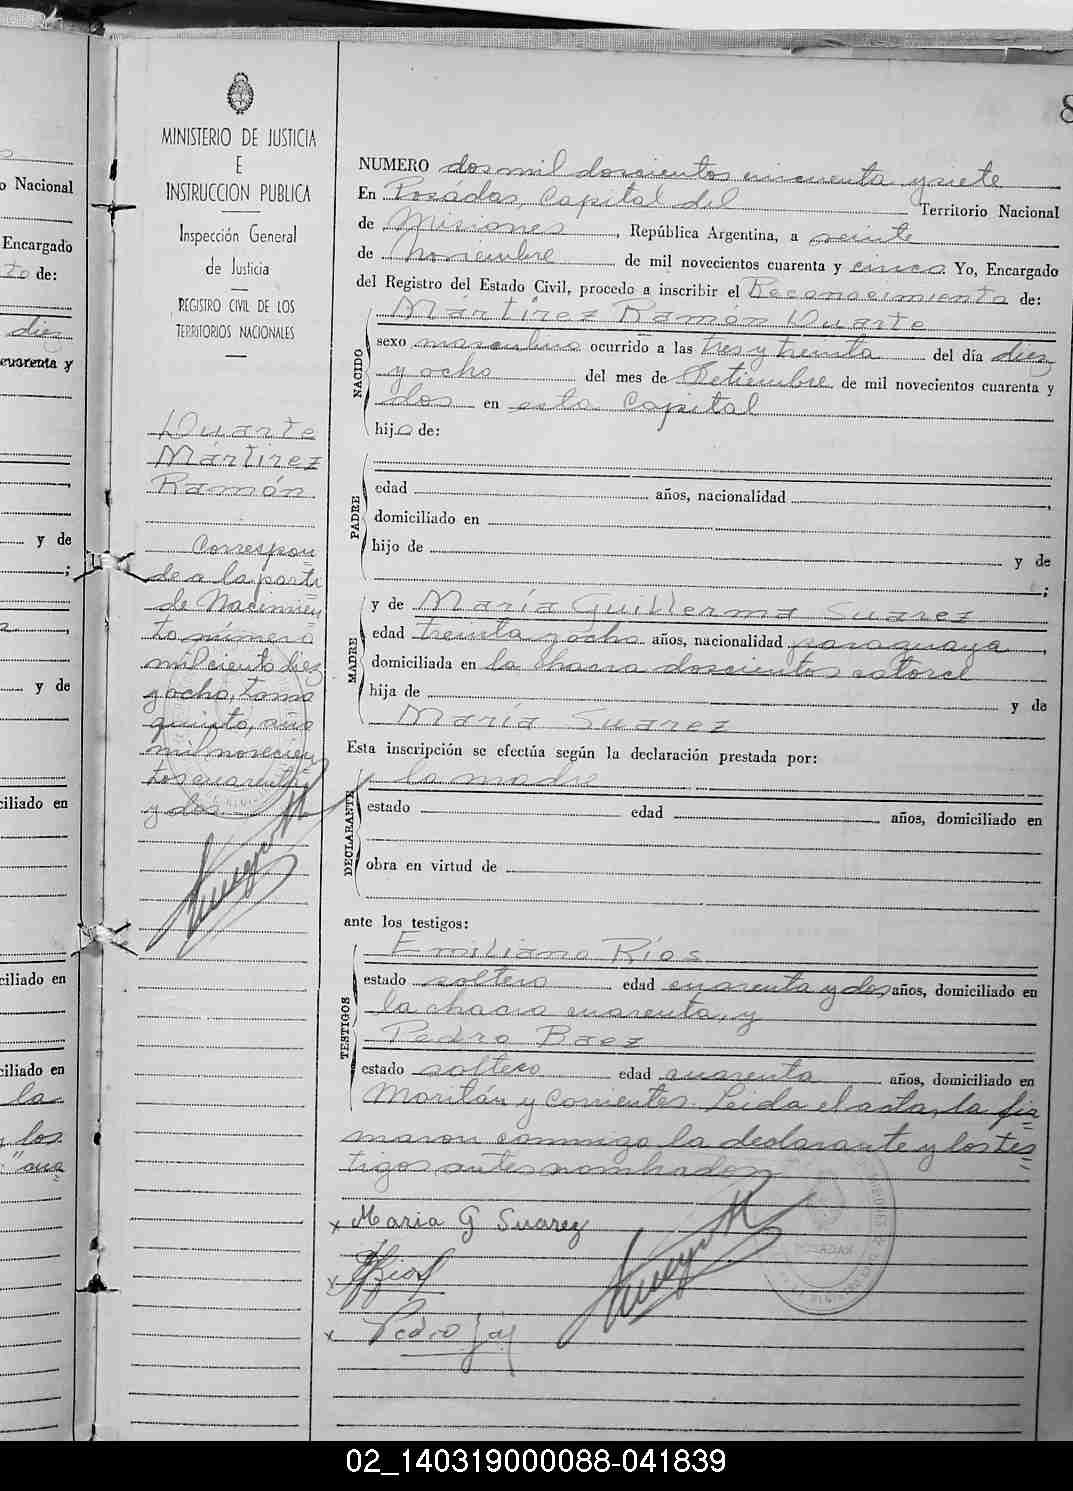 8
MINISTERIO DE JUSTICIA
E
INSTRUCCION PUBLICA
Inspección General
de Justicia
REGISTRO CIVIL DE LOS
TERRITORIOS NACIONALES
Duarte
Mártirez
Ramón
Correspon
de a la parti
de Nacimien
to número
mil ciento diez
y ocho, tomo
quinto, año
mil novecien
tos cuarenta
y dos
NUMERO dos mil doscientos cincuenta y siete
En Posádas, Capital del Territorio Nacional
de Misiones, República Argentina, a veinte
de Noviembre de mil novecientos cuarenta y cinco. Yo, Encargado
del Registro del Estado Civil, procedo a inscribir el Reconocimiento de:
Mártirez Ramón Duarte
NACIDO
sexo masculino ocurrido a las tres y treinta del día diez
y ocho del mes de Setiembre de mil novecientos cuarenta y
dos en esta Capital
hijo de:
PADRE
edad años, nacionalidad ,
domiciliado en
hijo de y de
;
MADRE
y de María Guillerma Suarez
edad treinta y ocho años, nacionalidad paraguaya,
domiciliada en la chacra doscientos catorce
hija de y de
María Suarez
Esta inscripción se efectúa según la declaración prestada por:
DECLARANTE
la madre
estado edad años, domiciliado en
obra en virtud de
ante los testigos:
TESTIGOS
Emiliano Ríos
estado soltero edad cuarenta y dos años, domiciliado en
la chacra cuarenta, y
Pedro Baez
estado soltero edad cuarenta años, domiciliado en
Moritán y Corrientes. Leida el acta, la fir
maron conmigo la declarante y los tes
tigos antes nombrados
x Maria G Suarez
x Rios
x Pedro
o Nacional
Encargado
to de:
diez
cuarenta y
y de
;
y de
ciliado en
ciliado en
ciliado en
la
los
02_140319000088-041839